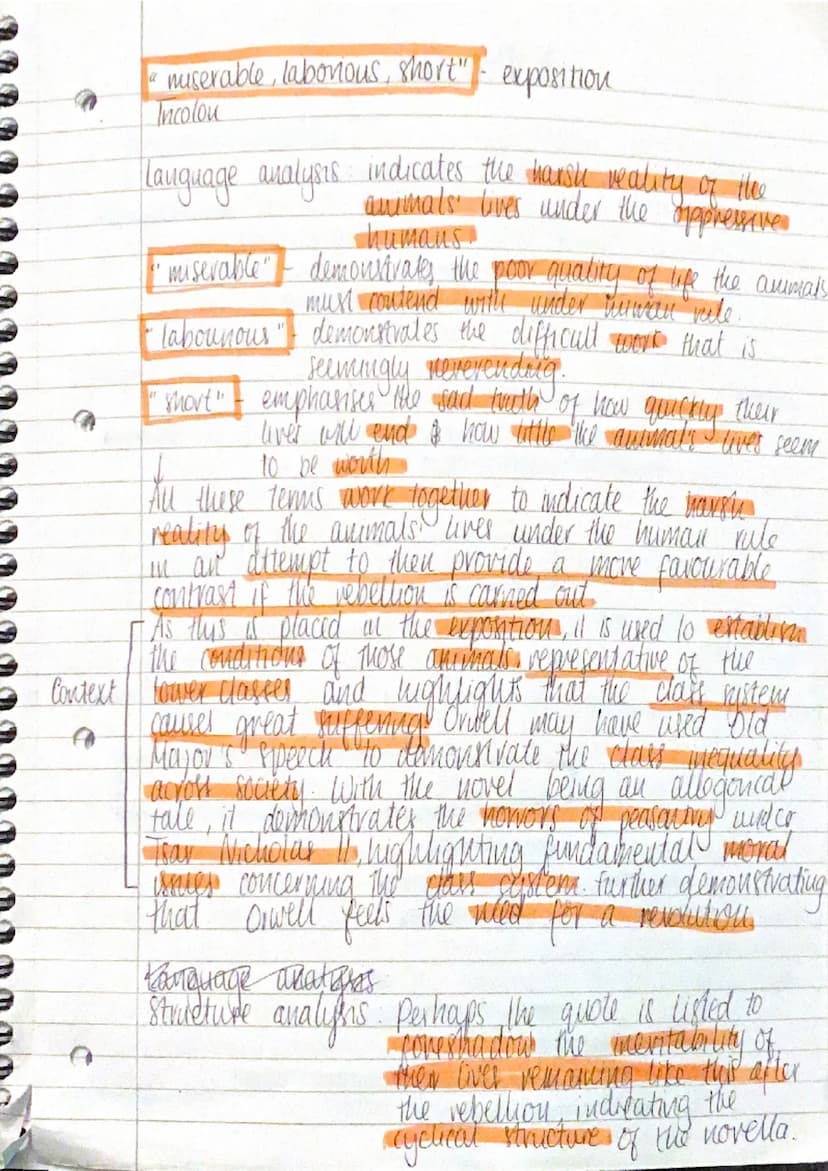 "miserable, laborious, short" - exposition
Tricolon
Language analysis: indicates the harsh reality of the
animals' lives under the oppressive
humans.
"miserable" - demonstrates the poor quality of life the animals
must contend with under human rule.
"labourious" - demonstrates the difficult work that is
seemingly neverending.
"short" - emphasises the sad truth of how quickly their
lives will end & how little the animals' lives seem
to be worth
↓
All these terms work together to indicate the harsh
reality of the animals' lives under the human rule
in an attempt to then provide a more favourable
contrast if the rebellion is carried out.
As this is placed in the exposition, it is used to establish
the conditions of those animals representative of the
Context lower classes and highlights that the class system
causes great suffering. Orwell may have used Old
Major's speech to demonstrate the class inequality
across society. With the novel being an allegorical
tale, it demonstrates the horrors of peasantry under
Tsar Nicholas II, highlighting fundamental moral
issues concerning the class system. further demonstrating
that Orwell feels the need for a revolution.
Language analysis
Structure analysis: Perhaps the quote is listed to
foreshadow the inevitability of
their lives remaining like this after
the rebellion, indicating the
cyclical structure of the novella.